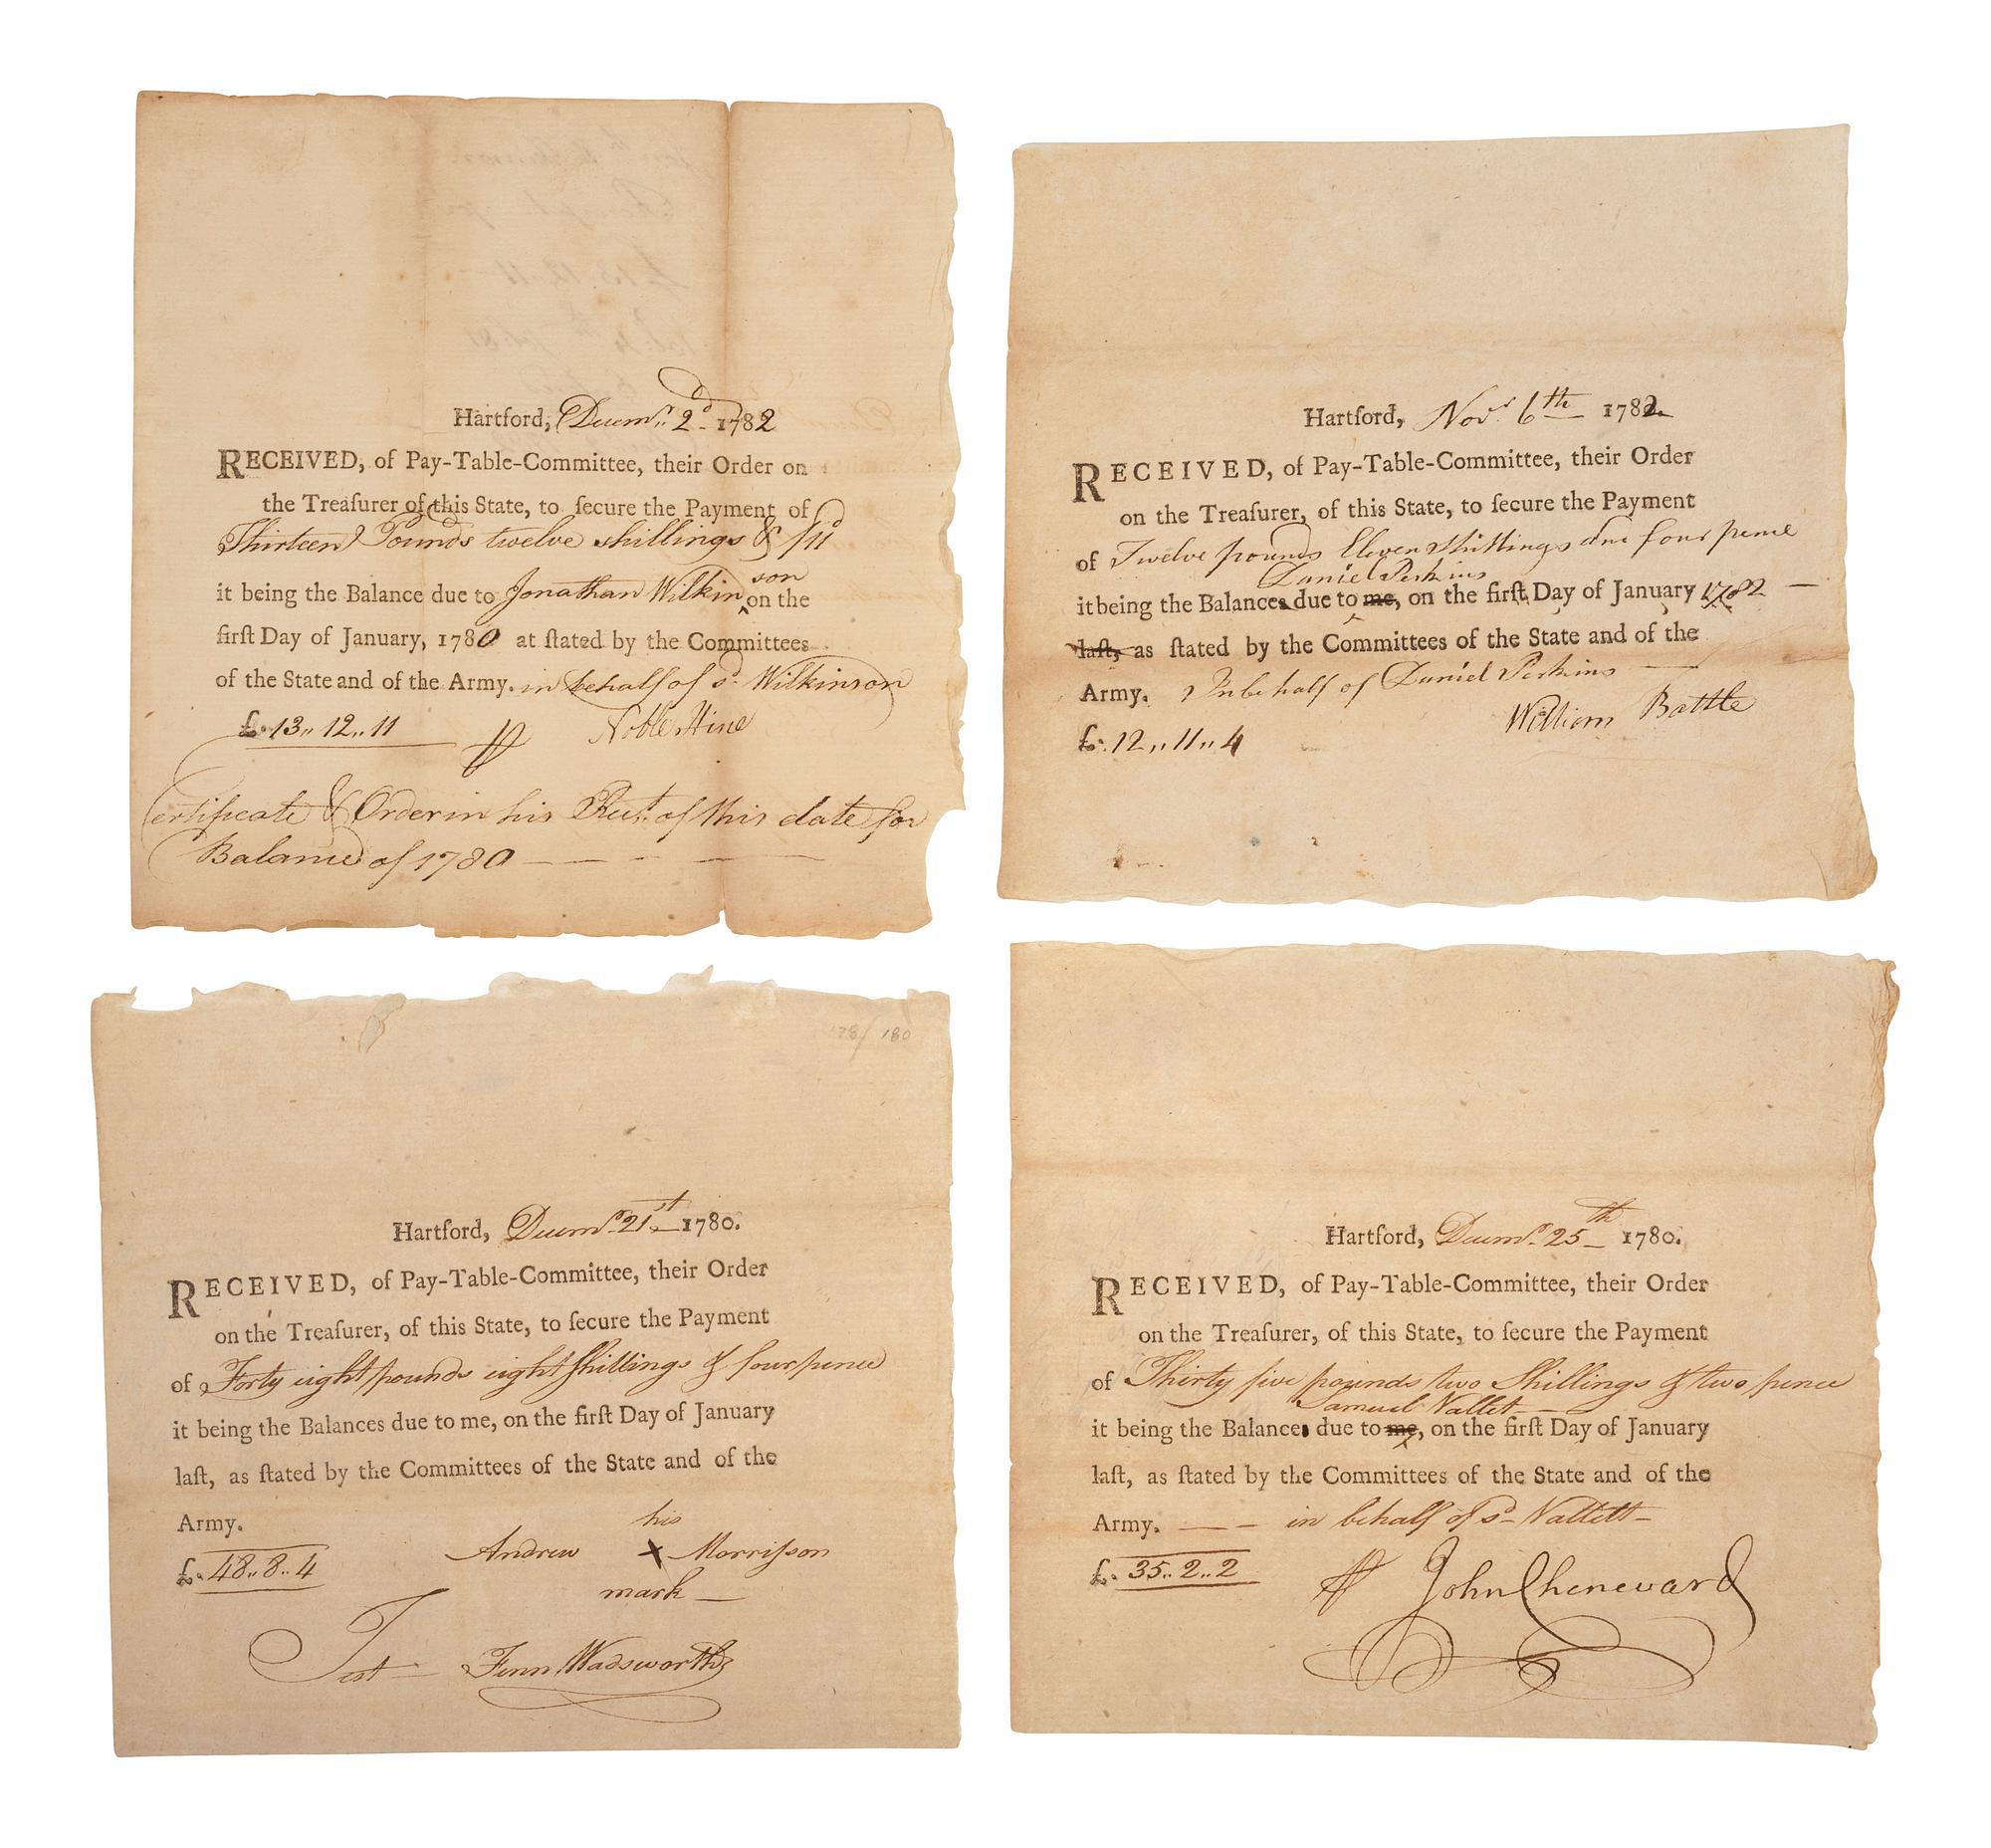 Hartford, Decemr. 2d. 1782
RECEIVED, of Pay-Table-Committee, their Order on
the Treaſurer of this State, to ſecure the Payment of
Thirteen Pounds twelve shillings & /11d
son
it being the Balance due to Jonathan Wilkin ‸ on the
firſt Day of January, 1780 at ſtated by the Committees
of the State and of the Army. in behalf of sd. Wilkinson
£. 13,, 12,, 11 Noble Hine
Certificate & Order in his Rect. of this date for
Balance of 1780 — — — — —
Hartford, Novr. 6th 1782.
RECEIVED, of Pay-Table-Committee, their Order
on the Treaſurer, of this State, to ſecure the Payment
of Twelve pounds Eleven Shillings and four pence
Daniel Perkins
it being the Balances due to me, on the firſt Day of January 1782 —
laſt, as ſtated by the Committees of the State and of the
Army. In behalf of Daniel Perkins —
William Battle
£. 12,, 11,, 4
178/ 180
Hartford, Decemr. 21st — 1780.
RECEIVED, of Pay-Table-Committee, their Order
on the Treaſurer, of this State, to ſecure the Payment
of Forty eight pounds eight ſhillings & four pence
it being the Balances due to me, on the firſt Day of January
laſt, as ſtated by the Committees of the State and of the
Army.
his
£. 48,, 8,, 4 Andrew X Morriſson
mark —
Test — Fenn Wadsworth
Hartford, Decemr. 25th — 1780.
RECEIVED, of Pay-Table-Committee, their Order
on the Treaſurer, of this State, to ſecure the Payment
of Thirty five pounds two Shillings & two pence
Samuel Vallet —
it being the Balance due to me, on the firſt Day of January
laſt, as ſtated by the Committees of the State and of the
Army. — — in behalf of sd — Vallett —
£. 35,, 2,, 2 John Chenevard